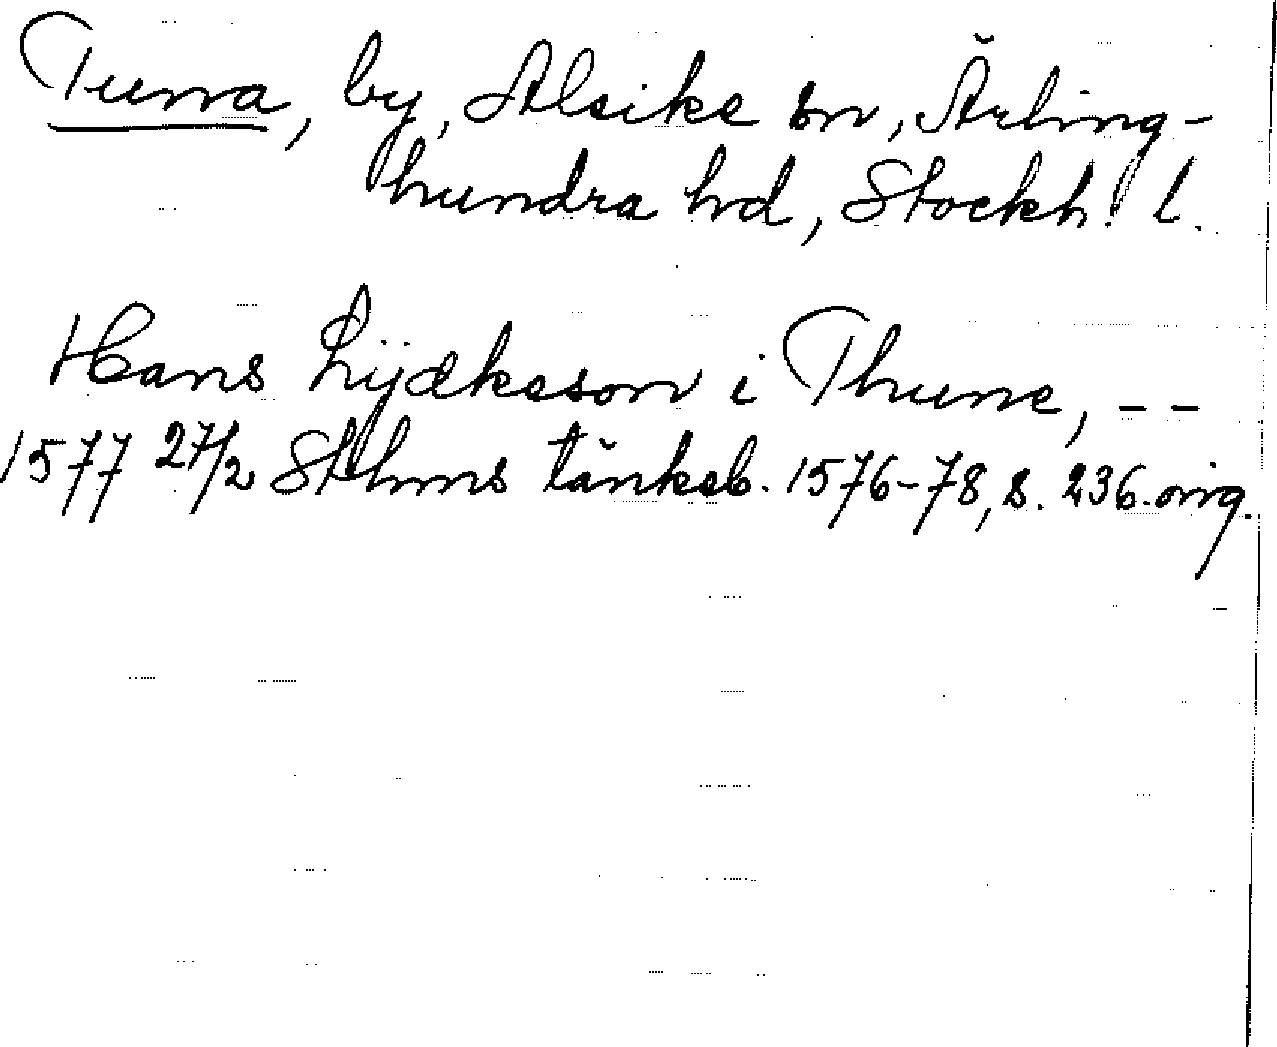 Tuna, by, Alsike sn, Ärling-
hundra hd, Stockh. l.
Hans Lÿdkeson i Thune, - -
1577 27/2 Sthms tänkeb. 1576-78, s. 236. orig.